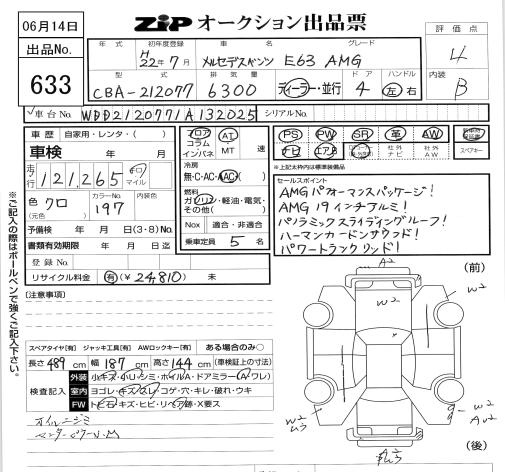 06月14日
ZIP オークション出品票
出品No.
633
年式
初年度登録
車名
グレード
評価点
H
22年7月
メルセデスベンツ E63 AMG
4
型式
排気量
ドア
ハンドル
内装
CBA-212077
6300
ディーラー・並行
4
左 右
B
車台No.
WDD2120771A132025
シリアルNo.
車歴 自家用・レンタ・( )
フロア
コラム
インパネ
AT
MT
速
PS PW SR 革 AW
車検 年 月
ナビ エアB
社外
ナビ
社外
AW
スペアキー
走行
121,265
マイル
冷房
無・C・AC・AAC
※上記太枠内は標準装備品
色
クロ
(元色)
カラーNo.
197
内装色
燃料
ガソリン・軽油・電気・
その他( )
セールスポイント
AMGパフォーマンスパッケージ!
AMG 19インチアルミ!
パノラミックスライディングルーフ!
ハーマンカードンサウンド!
パワートランクリッド!
予備検 年 月 日(3・8)No.
Nox 適合・非適合
書類有効期限 年 月 日迄
乗車定員 5 名
登録No.
リサイクル料金 有(¥ 24,810) 未
[注意事項]
※ご記入の際はボールペンで強くご記入下さい。
(前)
A2
W2
W2
スペアタイヤ[有] ジャッキ工具[有] AWロックキー[有] ある場合のみ○
長さ 489 cm 幅 187 cm 高さ 144 cm (車検証上の寸法)
検査記入
外装 小キズ・小凹・シミ・ホイルA・ドアミラー(A・ワレ)
室内 ヨゴレ・キズ・スレ・コゲ・穴・キレ・破れ・ウキ
FW トビ石・キズ・ヒビ・リペア跡・X要ス
オイルニジミ
W2
W2
(後)